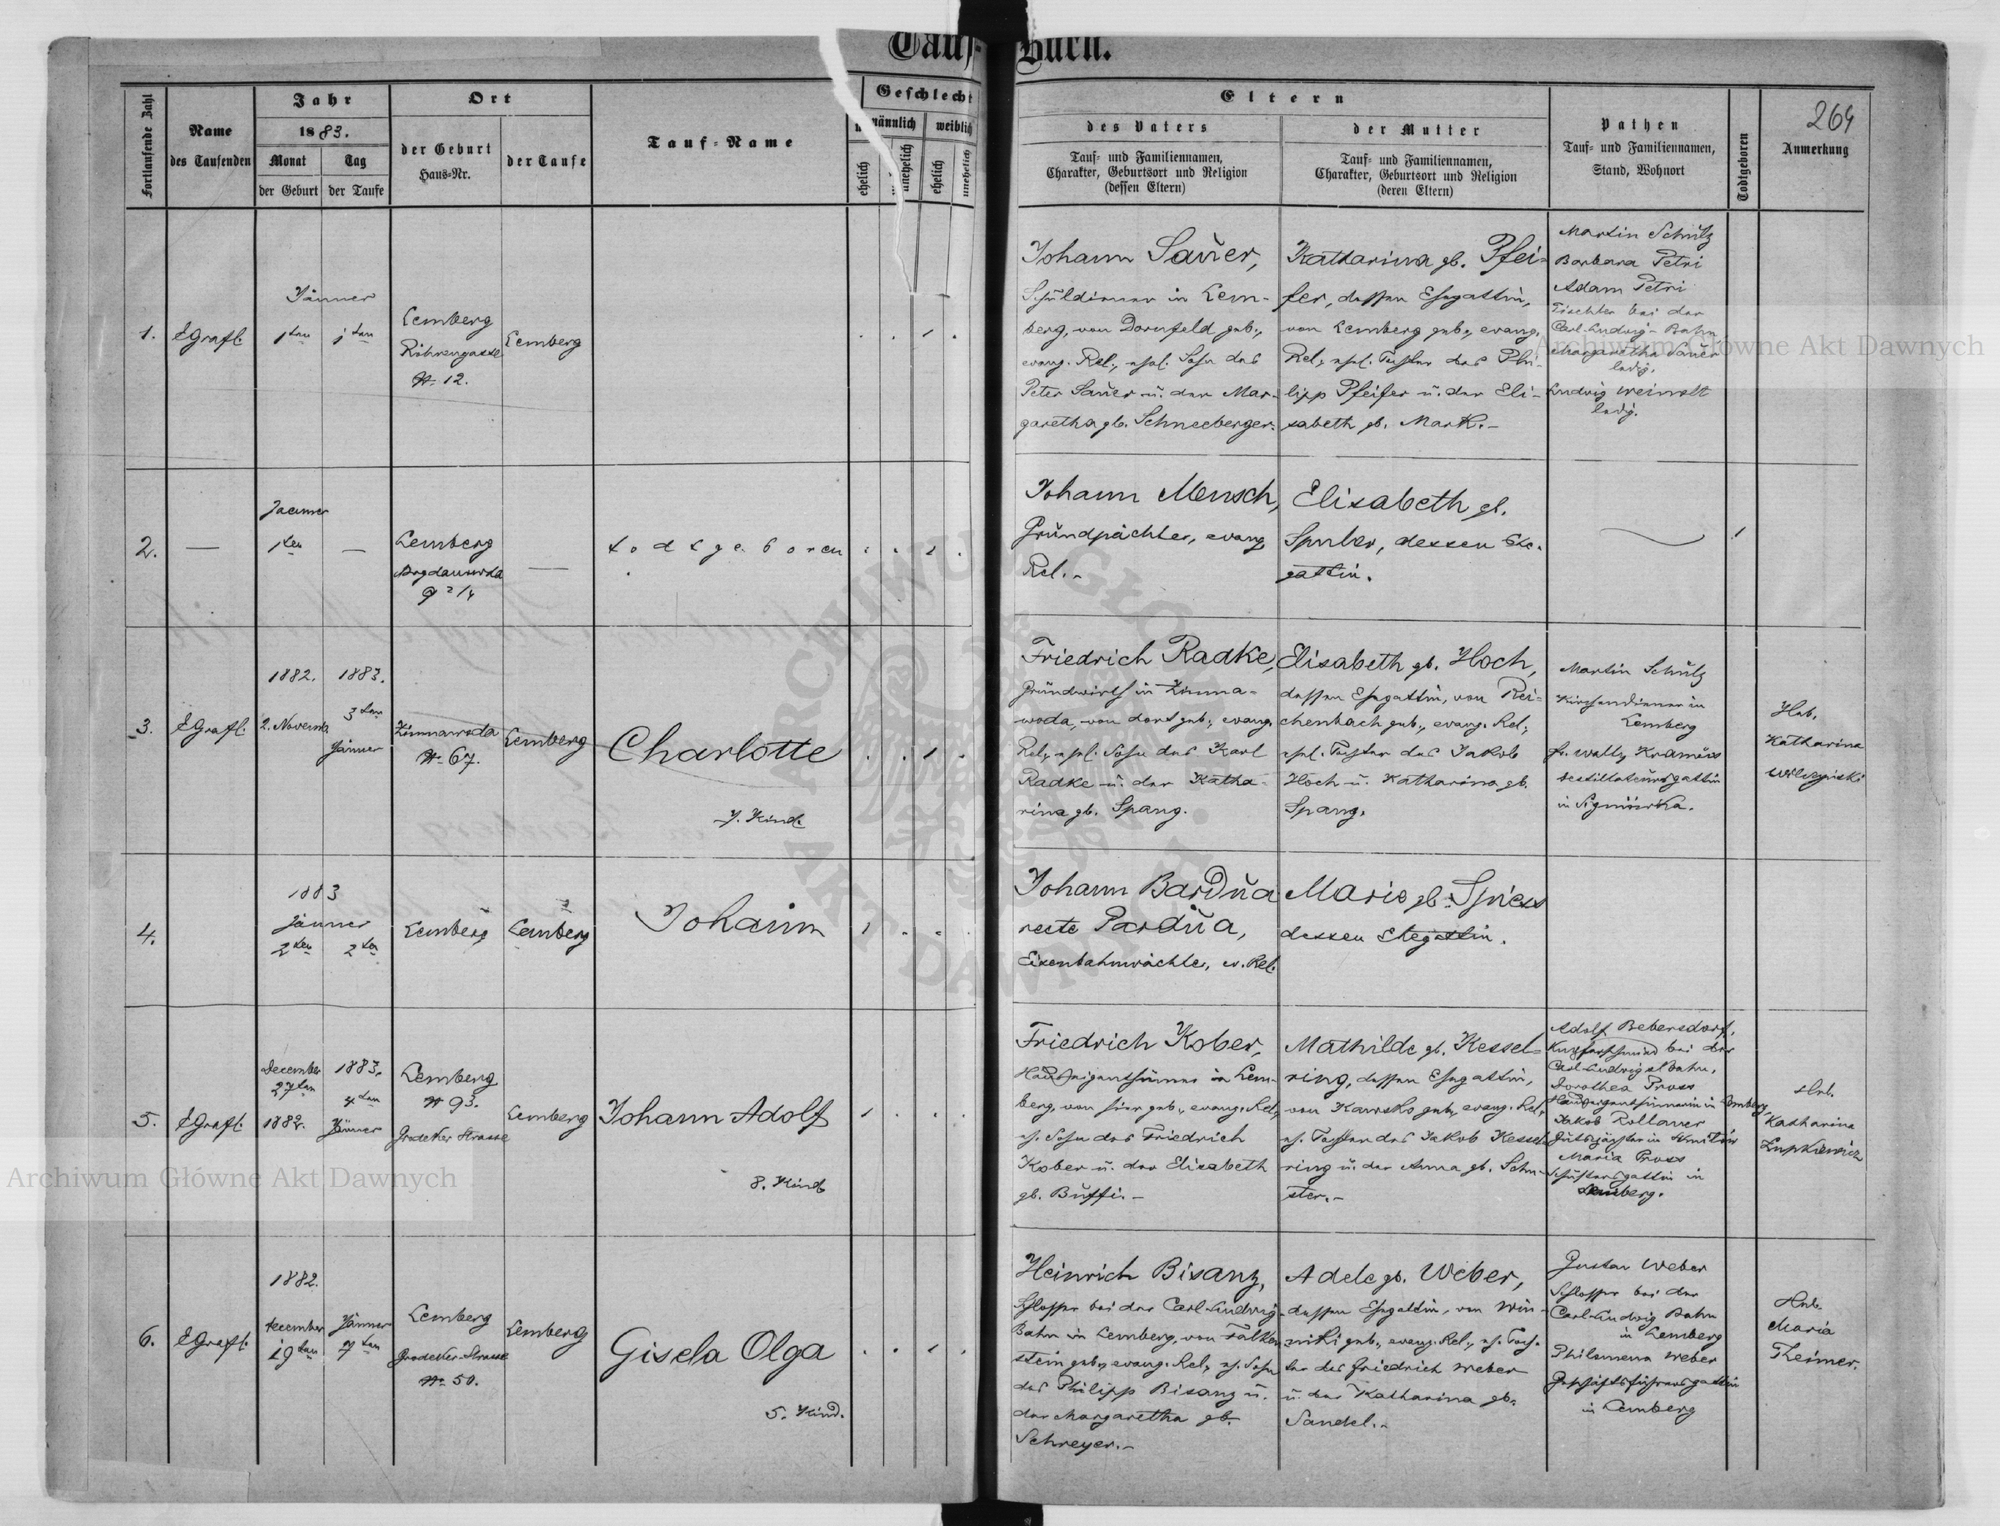 Tauf-Buch.
264
Fortlaufende Zahl
Name
des Taufenden
Jahr
1883.
Monat
der Geburt
Tag
der Taufe
Ort
der Geburt
Haus-Nr.
der Taufe
Tauf-Name
Geschlecht
männlich
weiblich
ehelich
unehelich
ehelich
unehelich
Eltern
des Vaters
Tauf- und Familiennamen,
Charakter, Geburtsort und Religion
(dessen Eltern)
der Mutter
Tauf- und Familiennamen,
Charakter, Geburtsort und Religion
(deren Eltern)
Pathen
Tauf- und Familiennamen,
Stand, Wohnort
Todtgeboren
Anmerkung
1.
EGrafl.
Jänner
1ten
1ten
Lemberg
Röhrengasse
N= 12.
Lemberg
Johann Saŭer,
Schŭldiener in Lem-
berg, von Dornfeld geb.,
evang. Rel., ehel. Sohn des
Peter Saŭer u. der Mar-
garetha gb. Schneeberger.
Katharina gb. Pfei-
fer, dessen Ehegattin,
von Lemberg geb., evang.
Rel., ehel. Tochter des Phi-
lipp Pfeifer u. der Eli-
sabeth gb. Mark.-
Martin Schŭtz
Barbara Petri
Adam Petri
Tischler bei der
Carl-Ludwig-Bahn
Margaretha Saŭer
ledig.
Ludwig Weinolt
ledig.
2.
Jaenner
1ten
Lemberg
9 2/4
todtgeboren
Johann Mensch,
Grŭndpächter, evang
Rel.-
Elisabeth gb.
dessen Ehe-
gattin.
3.
EGrafl.
1882.
2. Novemb.
1883.
3ten
Jänner
Zimnawoda
N= 67.
Lemberg
Charlotte
7. Kind.
Friedrich Radke,
Grŭndwirth in Zimna-
woda, von dort geb., evang.
Rel., ehel. Sohn des Karl
Radke u. der Katha-
rina gb. Spang.
Elisabeth gb. Hoch,
dessen Ehegattin, von Rei-
chenbach geb., evang. Rel.,
ehel. Tochter des Jakob
Hoch u. Katharina gb.
Spang.
Martin Schŭtz
Kirchendiener in
Lemberg
Destillateŭrsgattin
in Sygniówka.
Heb.
Katharina
Wilczynski
4.
1883
Jänner
2ten
2ten
Lemberg
Lemberg
Johann
Johann Bardŭa
recte Pardŭa,
Eisenbahnwächter, ev. Rel.
Marie gb. Spiess
dessen Ehegattin.
5.
EGrafl.
December
27ten
1882.
1883.
4ten
Jänner
Lemberg
N 93.
Grodeker Strasse
Lemberg
Johann Adolf
8. Kind
Friedrich Kober,
Haŭseigenthümer in Lem-
berg, von hier geb., evang. Rel.,
eh. Sohn des Friedrich
Kober u. der Elisabeth
gb. Bŭffi.-
Mathilde gb. Kessel-
ring, dessen Ehegattin,
von Kawsko geb., evang. Rel.,
eh. Tochter des Jakob Kessel-
ring u. der Anna gb. Schu-
ster.-
Adolf Bebersdorf,
Kupferschmied bei der
Carl-Ludwigsbahn,
Dorothea Pross
Haŭseigenthümerin in Lemberg,
Jakob Rollauer
Maria Pross
Schŭstersgattin in
Lemberg.
Heb.
Katharina
Zupkiewicz
6.
EGrafl.
1882.
December
19ten
Jänner
7ten
Lemberg
Grodeker-Strasse
N= 50.
Lemberg
Gisela Olga
5. Kind.
Heinrich Bisanz,
Schlosser bei der Carl-Ludwig-
Bahn in Lemberg, von Falken-
stein geb., evang. Rel., eh. Sohn
des Philipp Bisanz u.
der Margaretha gb.
Schreyer.-
Adele gb. Weber,
dessen Ehegattin, von Win-
niki geb., evang. Rel., eh. Toch-
ter des Friedrich Weber
u. der Katharina gb.
Sandel.-
Gustav Weber
Schlosser bei der
Carl-Ludwig Bahn
in Lemberg
Philomena Weber
Geschäftsführersgattin
in Lemberg
Heb.
Maria
Theimer.
Archiwum Główne Akt Dawnych
Archiwum Główne Akt Dawnych
ARCHIWUM GŁÓWNE AKT DAWNYCH